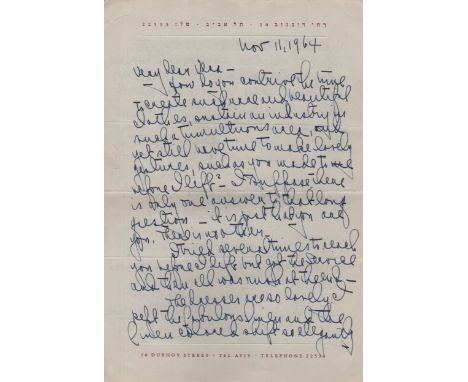 רח' דובנוב 56 · תל אביב · טל: 22555
Nov 11, 1964
Very dear
How do you contrive the time
to create such rare and beautiful
clothes, sustain an industry in
such a tumultuous area, and
yet still have time to make lovely
gestures, such as you made to me
before I left? — I suppose there
is only one answer to that long
question — it is just that you are
you. There is no other.
I tried several times to reach
you before I left but got the service
and then all was rush at the
The dresses are so lovely. I
left the fabulous and the
linen colored shift so elegantly
DUBNOV STREET · TEL AVIV · TELEPHONE